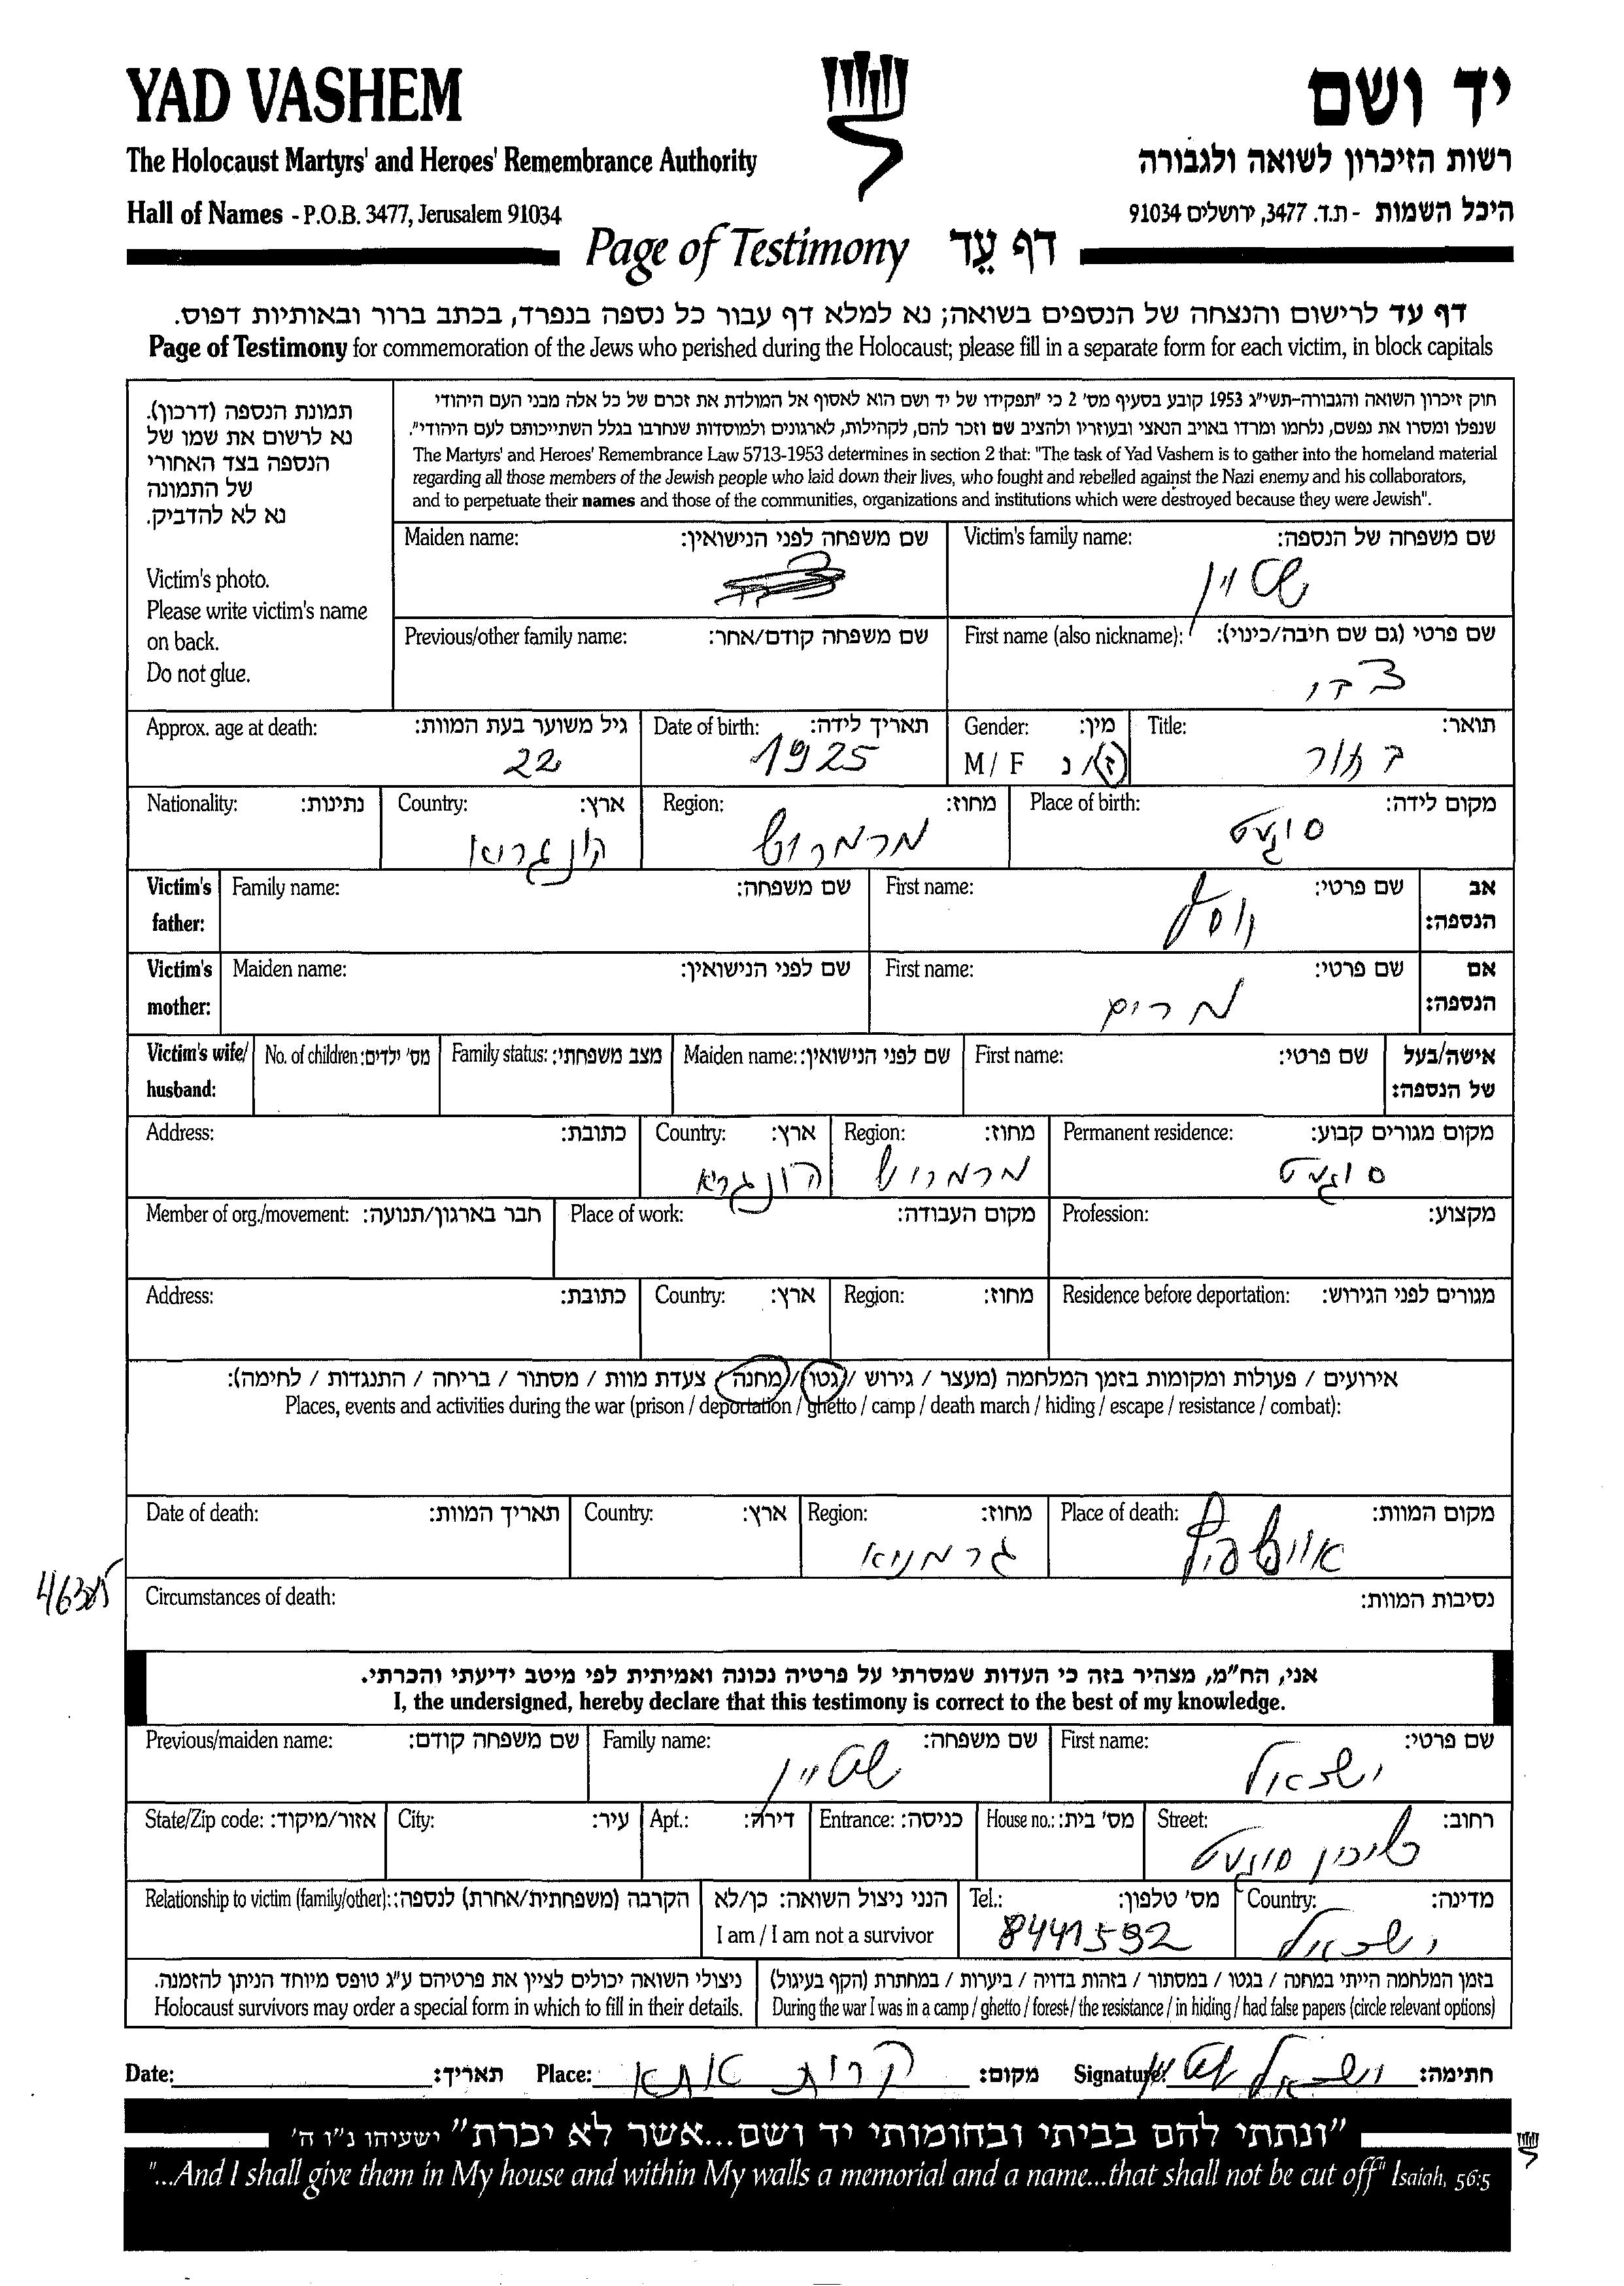 YAD VASHEM
יד ושם
The Holocaust Martyrs' and Heroes' Remembrance Authority
רשות הזיכרון לשואה ולגבורה
Hall of Names - P.O.B. 3477, Jerusalem 91034
היכל השמות - ת.ד. 3477, ירושלים 91034
Page of Testimony דף עֵד
דף עד לרישום והנצחה של הנספים בשואה; נא למלא דף עבור כל נספה בנפרד, בכתב ברור ובאותיות דפוס.
Page of Testimony for commemoration of the Jews who perished during the Holocaust; please fill in a separate form for each victim, in block capitals
תמונת הנספה (דרכון).
נא לרשום את שמו של
הנספה בצד האחורי
של התמונה
נא לא להדביק.
Victim's photo.
Please write victim's name
on back.
Do not glue.
חוק זיכרון השואה והגבורה-תשי"ג 1953 קובע בסעיף מס' 2 כי "תפקידו של יד ושם הוא לאסוף אל המולדת את זכרם של כל אלה מבני העם היהודי
שנפלו ומסרו את נפשם, נלחמו ומרדו באויב הנאצי ובעוזריו ולהציב שם וזכר להם, לקהילות, לארגונים ולמוסדות שנחרבו בגלל השתייכותם לעם היהודי".
The Martyrs' and Heroes' Remembrance Law 5713-1953 determines in section 2 that: "The task of Yad Vashem is to gather into the homeland material
regarding all those members of the Jewish people who laid down their lives, who fought and rebelled against the Nazi enemy and his collaborators,
and to perpetuate their names and those of the communities, organizations and institutions which were destroyed because they were Jewish".
Victim's family name: שם משפחה של הנספה:
שטיין
Maiden name: שם משפחה לפני הנישואין:
First name (also nickname): שם פרטי (גם שם חיבה/כינוי):
Previous/other family name: שם משפחה קודם/אחר:
Title: תואר:
בחור
Gender: מין:
M / F ז / נ
Date of birth: תאריך לידה:
1925
Approx. age at death: גיל משוער בעת המוות:
22
Place of birth: מקום לידה:
סוגעט
Region: מחוז:
מרמרוש
Country: ארץ:
הונגריא
Nationality: נתינות:
אב
הנספה:
First name: שם פרטי:
יוסף
Family name: שם משפחה:
Victim's
father:
אם
הנספה:
First name: שם פרטי:
מרים
Maiden name: שם לפני הנישואין:
Victim's
mother:
אישה/בעל
של הנספה:
First name: שם פרטי:
Maiden name: שם לפני הנישואין:
Family status: מצב משפחתי:
No. of children: מס' ילדים:
Victim's wife/
husband:
Permanent residence: מקום מגורים קבוע:
סוגעט
Region: מחוז:
מרמרוש
Country: ארץ:
הונגריא
Address: כתובת:
Profession: מקצוע:
Place of work: מקום העבודה:
Member of org./movement: חבר בארגון/תנועה:
Residence before deportation: מגורים לפני הגירוש:
Region: מחוז:
Country: ארץ:
Address: כתובת:
אירועים / פעולות ומקומות בזמן המלחמה (מעצר / גירוש / גטו / מחנה / צעדת מוות / מסתור / בריחה / התנגדות / לחימה):
Places, events and activities during the war (prison / deportation / ghetto / camp / death march / hiding / escape / resistance / combat):
Place of death: מקום המוות:
Region: מחוז:
גרמניא
Country: ארץ:
Date of death: תאריך המוות:
Circumstances of death: נסיבות המוות:
אני, הח"מ, מצהיר בזה כי העדות שמסרתי על פרטיה נכונה ואמיתית לפי מיטב ידיעתי והכרתי.
I, the undersigned, hereby declare that this testimony is correct to the best of my knowledge.
First name: שם פרטי:
ישראל
Family name: שם משפחה:
שטיין
Previous/maiden name: שם משפחה קודם:
Street: רחוב:
שיכון סוגעט
House no.: מס' בית:
Entrance: כניסה:
Apt.: דירה:
City: עיר:
State/Zip code: אזור/מיקוד:
Country: מדינה:
ישראל
Tel.: מס' טלפון:
8441592
הנני ניצול השואה: כן/לא
I am / I am not a survivor
Relationship to victim (family/other): הקרבה (משפחתית/אחרת) לנספה:
בזמן המלחמה הייתי במחנה / בגטו / במסתור / בזהות בדויה / ביערות / במחתרת (הקף בעיגול)
During the war I was in a camp / ghetto / forest / the resistance / in hiding / had false papers (circle relevant options)
ניצולי השואה יכולים לציין את פרטיהם ע"ג טופס מיוחד הניתן להזמנה.
Holocaust survivors may order a special form in which to fill in their details.
Signature: ישראל שטיין חתימה:
Place: קרית אתא מקום:
Date: תאריך:
"ונתתי להם בביתי ובחומותי יד ושם...אשר לא יכרת" ישעיהו נ"ו ה'
"...And I shall give them in My house and within My walls a memorial and a name...that shall not be cut off" Isaiah, 56:5